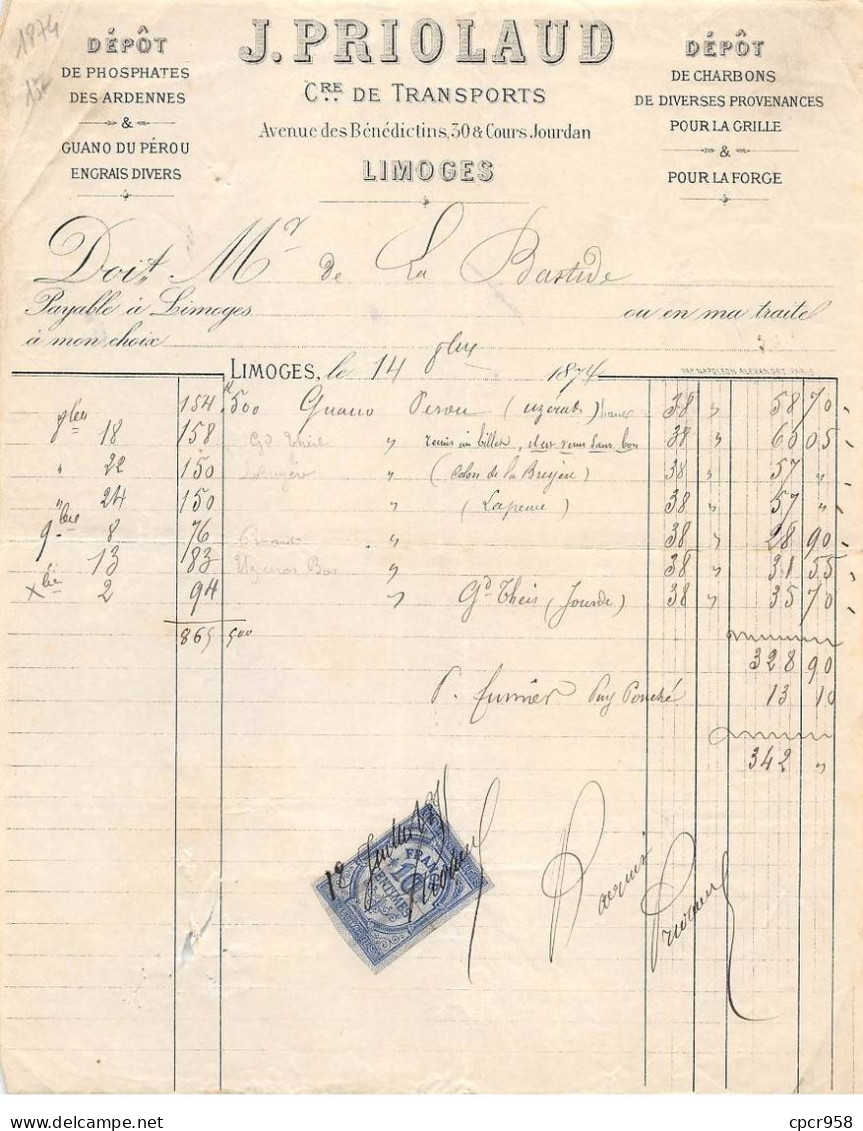 1874
15
DÉPÔT
DE PHOSPHATES
DES ARDENNES
&
GUANO DU PÉROU
ENGRAIS DIVERS
J. PRIOLAUD
CRE DE TRANSPORTS
Avenue des Bénédictins, 30 & Cours Jourdan
LIMOGES
DÉPÔT
DE CHARBONS
DE DIVERSES PROVENANCES
POUR LA GRILLE
&
POUR LA FORGE
Doit Mr de La Bastide
Payable à Limoges ou en ma traite
à mon choix
LIMOGES, le 14 1874
PAR NAPOLEON ALEXANDRE, PARIS
154 k500 Guano Perou 38 " 58 70
18 158 " remis un billet, deux remis sans bon 38 " 60 05
" 22 150 " (Colon de la Bruyère) 38 " 57 "
" 24 150 " (Lapeine) 38 " 57 "
9bre 8 76 " 38 " 28 90
" 13 83 " 38 " 31 55
Xbre 2 94 " Gd Theis (Jourde) 38 " 35 70
865 500
328 90
P. fumier Puy Ponché 13 10
342 "
12 Juillet 75
FRANC
10
CENTIMES
Priolaud
Acquis
Priolaud
cpcr958